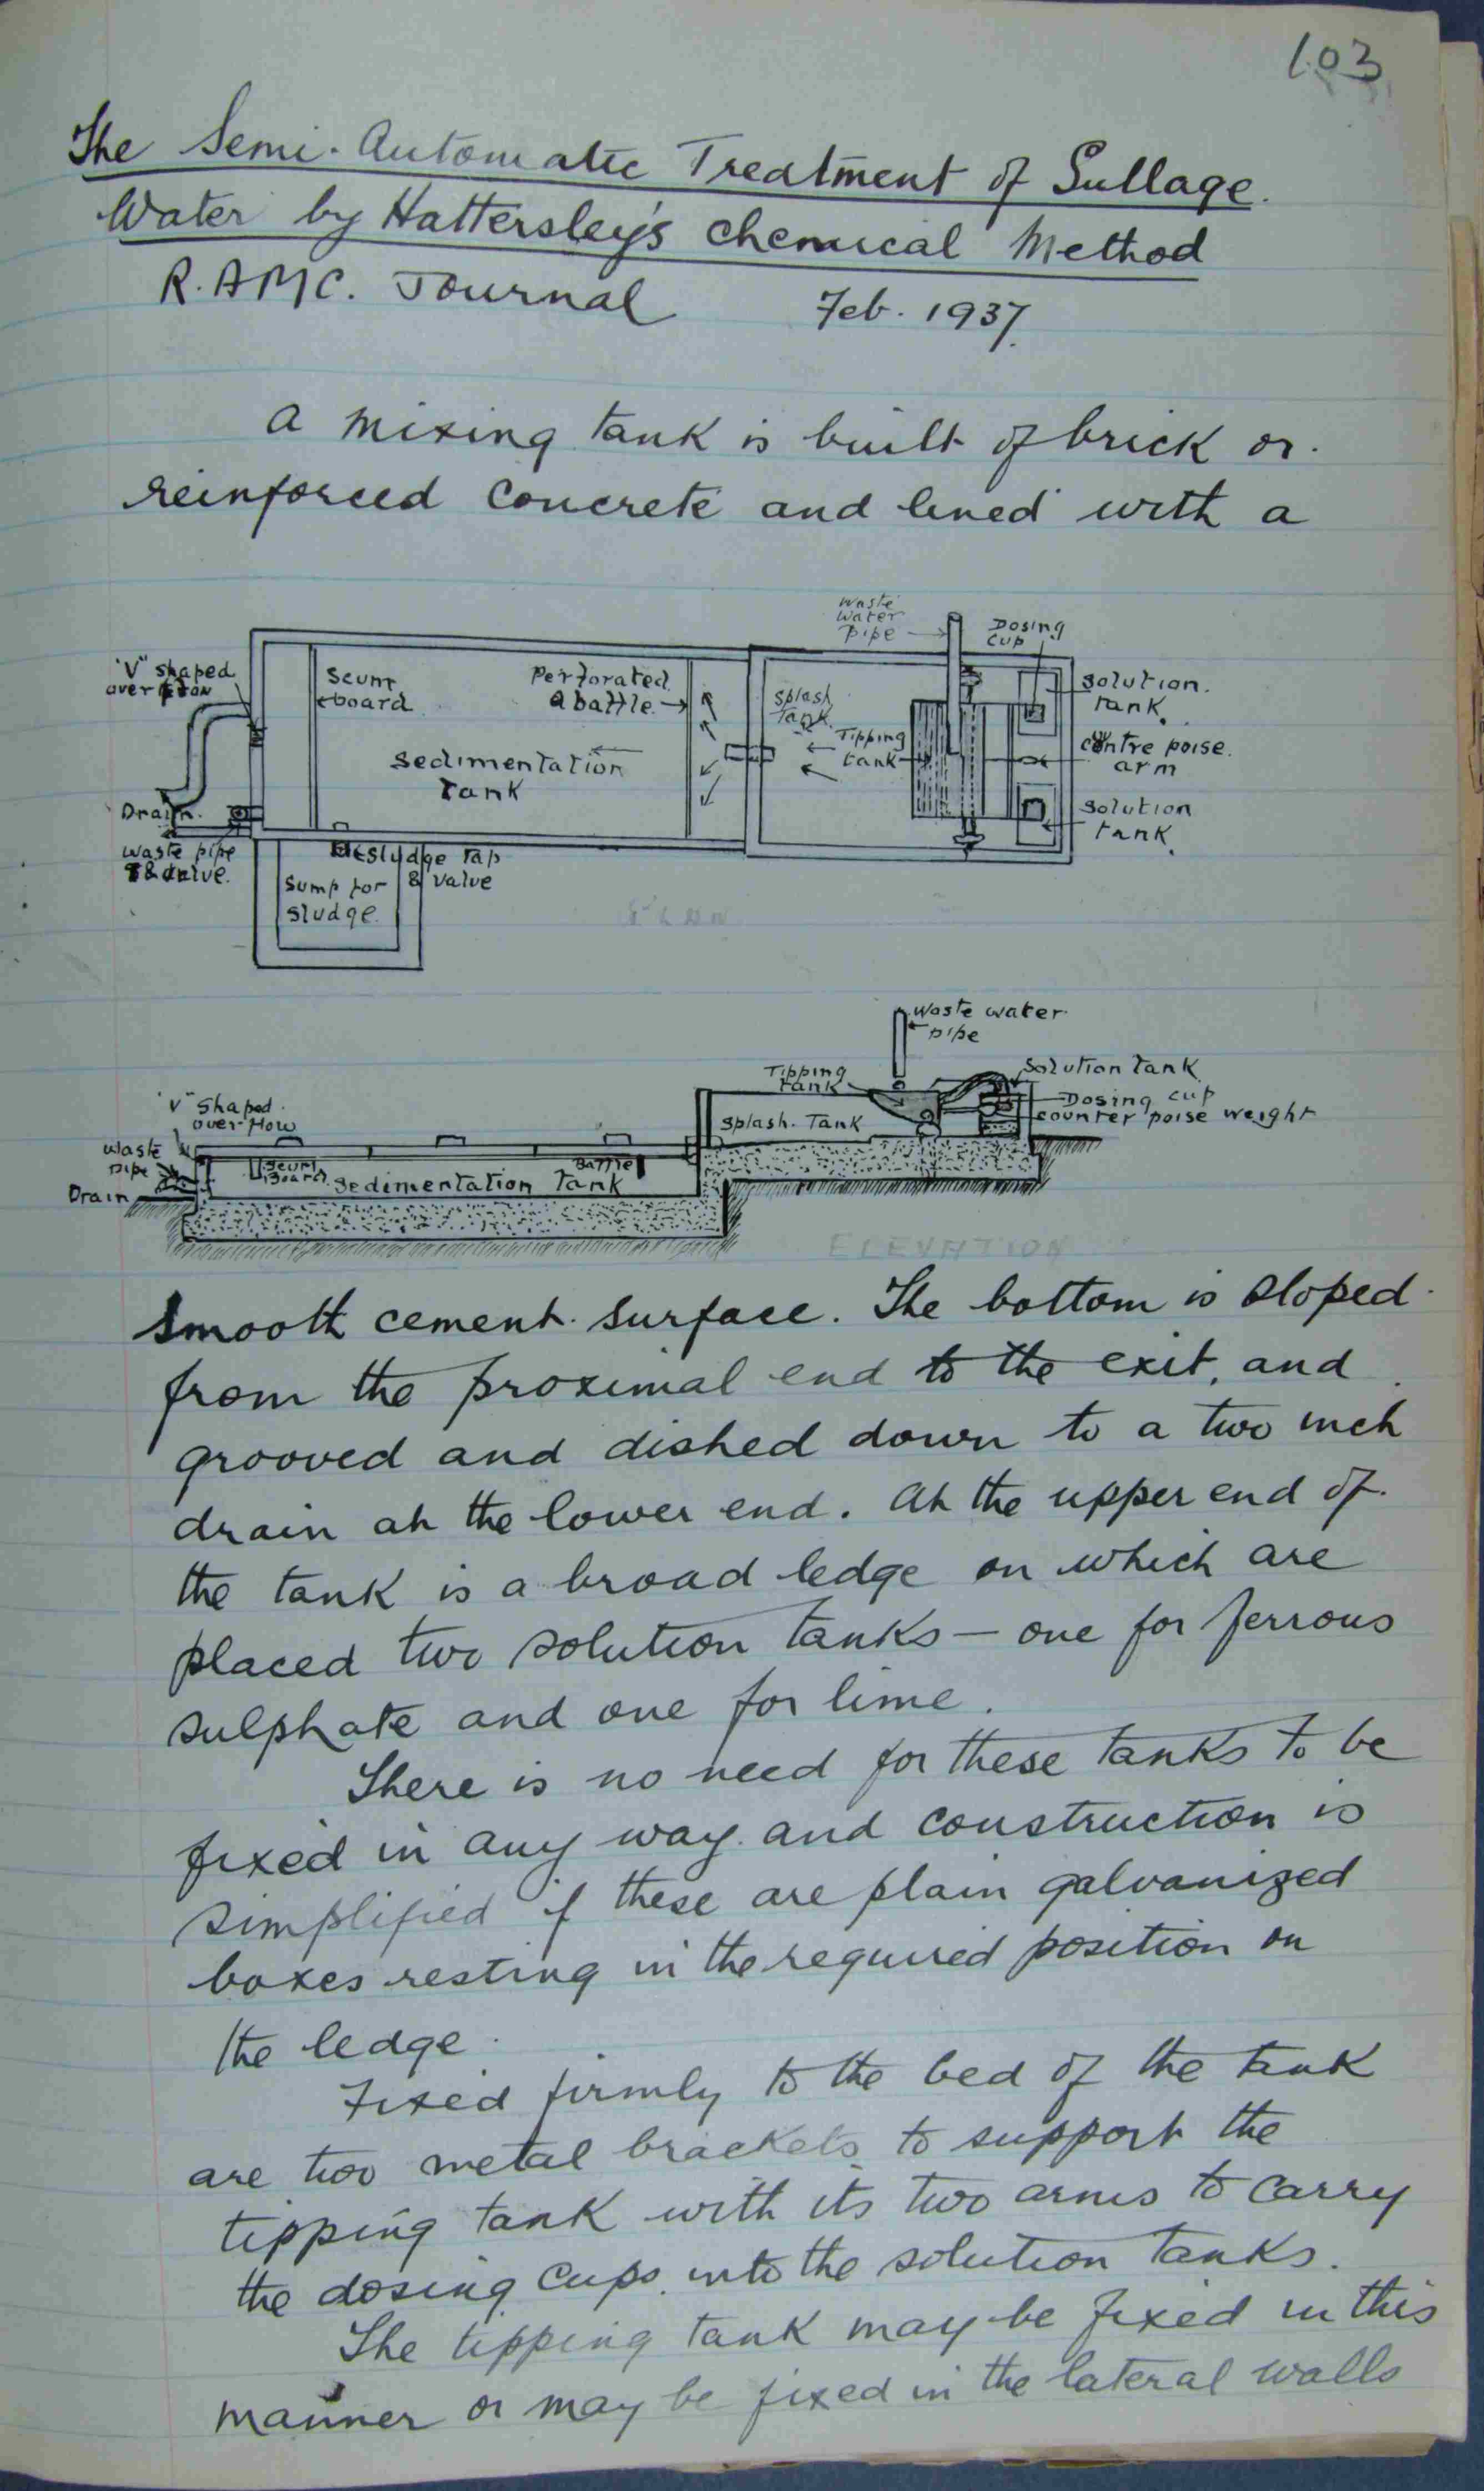 103
The Semi-Automatic Treatment of Sullage
Water by Hattersley's chemical Method
R.A.M.C. Journal Feb. 1937.
A mixing tank is built of brick or
reinforced concrete and lined with a
Waste
Water
Pipe
Dosing
Cup
"V" shaped
over
Scum
board
Perforated
a baffle
Splash
Tank
Tipping
tank
Solution
tank.
Sedimentation
Tank
arm
poise
Drain
Solution
tank.
waste pipe
Desludge Tap
& valve
Sump for
sludge
PLAN
Waste water
pipe
Tipping
tank
Solution Tank
Dosing cup
counter poise weight
"V" Shaped
over-flow
Splash. Tank
Waste
pipe
Scum
Board
Baffle
Sedimentation Tank
Drain
ELEVATION
smooth cement surface. The bottom is sloped
from the proximal end to the exit, and
grooved and dished down to a two inch
drain at the lower end. At the upper end of
the tank is a broad ledge on which are
placed two solution tanks — one for ferrous
sulphate and one for lime.
There is no need for these tanks to be
fixed in any way and construction is
simplified if these are plain galvanized
boxes resting in the required position on
the ledge.
Fixed firmly to the bed of the tank
are two metal brackets to support the
tipping tank with its two arms to carry
the dosing cups into the solution tanks.
The tipping tank may be fixed in this
manner or may be fixed in the lateral walls